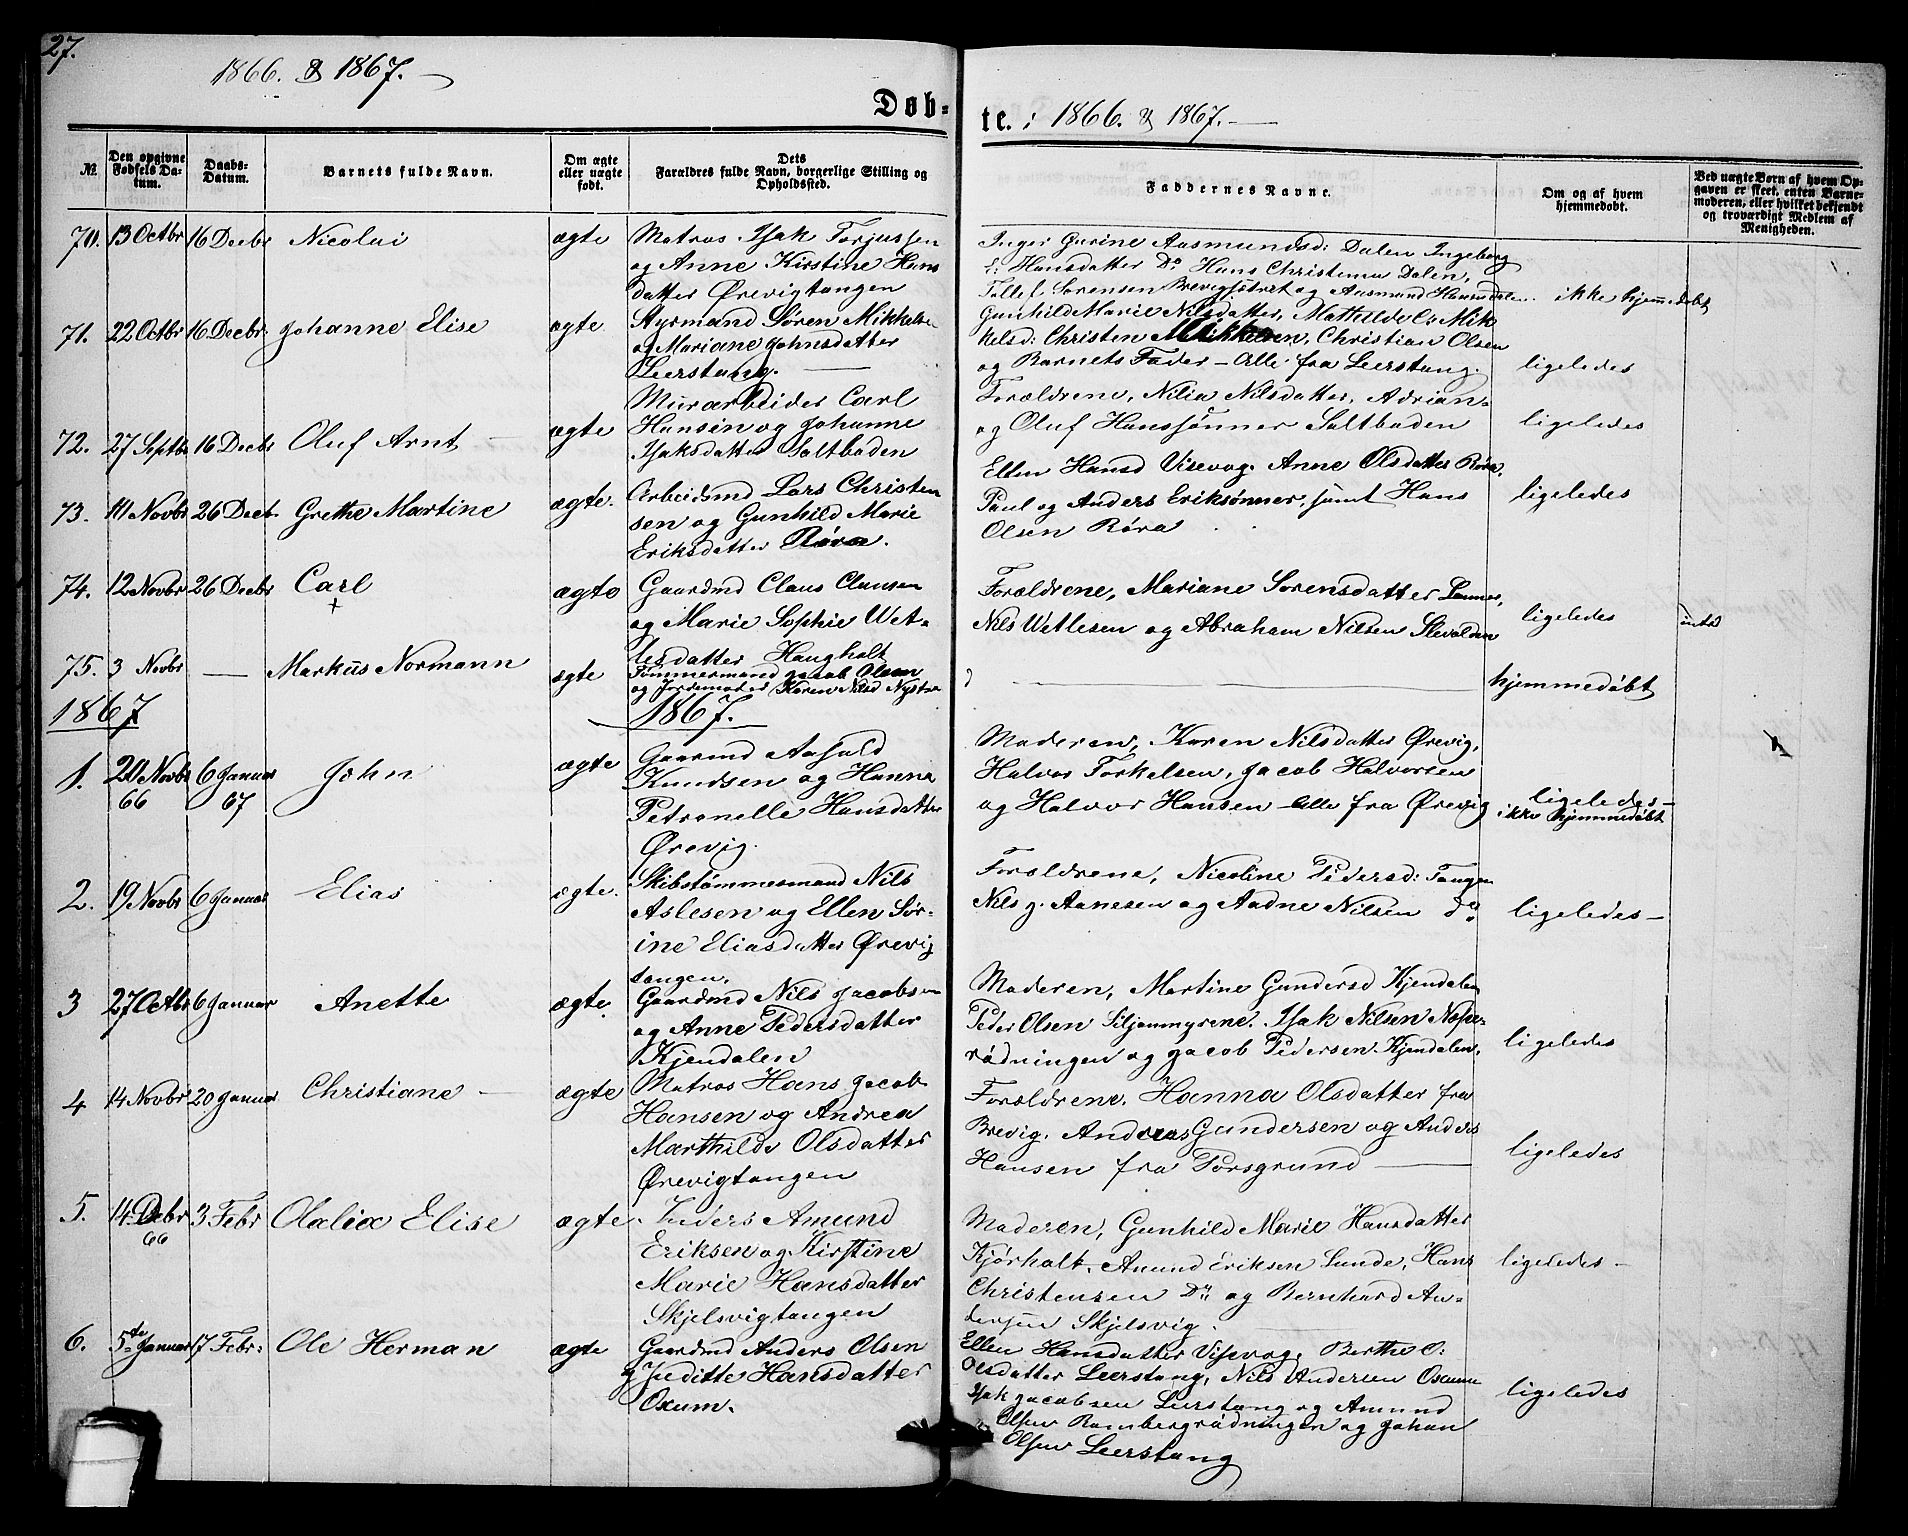 27.
1866. & 1867.
Døb-
te. : 1866. & 1867.
№
Den opgivne Fødsels Datum.
Daabs-Datum.
Barnets fulde Navn.
Om ægte eller uægte født.
Dets Forældres fulde Navn, borgerlige Stilling og Opholdssted.
Faddernes Navne.
Om og af hvem hjemmedøbt.
Ved uægte Børn af hvem Opgaven er skeet, enten Barnemoderen, eller hvilket bekjendt og troværdigt Medlem af Menigheden.
70. 13 Octbr 16 Decbr Nicolai ægte
Matros Isak Torjussen
og Anne Kirstine Hans
datter Ørevigtangen
Inger Gurine Aasmundsd: Dalen Ingeborg
Hansdatter Do Hans Christensen Dalen,
Tollef Sørensen Brevigstrat og Aasmund Hansen Dalen
ikke hjemmedøbt
71. 22 Octbr 16 Decbr. Johanne Elise ægte
Styrmand Søren Mikkelsen
og Mariane Johnsdatter
Leerstang.
Gunhild Marie Nilsdatter, Mathilde C: Mik
kelsd: Christen Mikkelsen, Christian Olsen
og Barnets Fader – Alle fra Leerstang.
ligeledes
72. 27 Septbr 16 Decbr Oluf Arnt ægte
Murarbeider Carl
Hansen og Johanne
Isaksdatter Saltboden
Forældrene, Nilia Nilsdatter, Adrian
og Oluf Hanssønner Saltboden
ligeledes
73. 10 Novbr 26 Decb. Grethe Martine ægte.
Arbeidsmd Lars Christen
sen og Gunhild Marie
Eriksdatter Røra.
Ellen Hansd Visevog. Anne Olsdatter Røra,
Paul og Anders Eriksønner, samt Hans
Olsen Røra
ligeledes
74. 12 Novbr 26 Decbr Carl ægte
+
Gaardmd Claus Clausen
og Marie Sophie Wet-
lesdatter Haugholt
Forældrene, Mariane Sørensdatter
Nils Wetlesen og Abraham Nilsen
ligeledes
75. 3 Novbr — Markus Normann ægte
Tømmermand Jacob Olsen
og Jordemoder Karen Nilsd
hjemmedøbt
1867
1867.
1. 20 Novbr 66 6 Januar 67 John ægte
Gaarmd
Knudsen og Hanna
Petronelle Hansdatter
Ørevig.
Moderen, Karen Nilsdatter Ørevig,
Halvor Torkelsen, Jacob Halvorsen
og Halvor Hansen – Alle fra Ørevig
ligeledes –
ikke hjemmedøbt
2. 19 Novbr 6 Januar Elias ægte.
Skibstømmermand Nils
Aslesen og Ellen Sør-
ine Eliasdatter Ørevig
tangen.
Forældrene, Nicoline Pedersd: Tangen
Nils J. Aanesen og Aadne Nilsen do
ligeledes –
3 27 Octbr 6 Januar Anette ægte.
Gaardmd Nils Jacobsen
og Anne Pedersdatter
Kjendalen
Moderen, Martine Gundersd Kjendalen
Peder Olsen Siljammyrene. Isak Nilsen
rødningen og Jacob Pedersen Kjendalen.
ligeledes
4 14 Novbr 20 Januar Christiane – ægte
Matros Hans Jacob
Hansen og Andrea
Marthilde Olsdatter
Ørevigtangen
Forældrene. Hanna Olsdatter fra
Brevig. Andreas Gundersen og Anders
Hansen fra Porsgrund
ligeledes
5. 14 Debr 66 3 Febr Olalia Elise ægte.
Inders Amund
Eriksen og Kirstine
Marie Hansdatter
Skjelsvigtangen
Moderen, Gunhild Marie Hansdatter
Kjørholt. Amund Eriksen Sunde, Hans
Christensen Do og Bernhard An-
dersen Skjelsvig.
ligeledes –
6. 5te Januar 17 Febr: Ole Herman ægte
Gaardmd Anders Olsen
og Jeditte Hansdatter
Oxum.
Ellen Hansdatter Visevog, Berthe O:
Olsdatter Leerstang, Nils Andersen Oxum
Isak Jacobsen Leerstang og Amund
Olsen Rambergrødningen og Johan
Olsen Leerstang
ligeledes